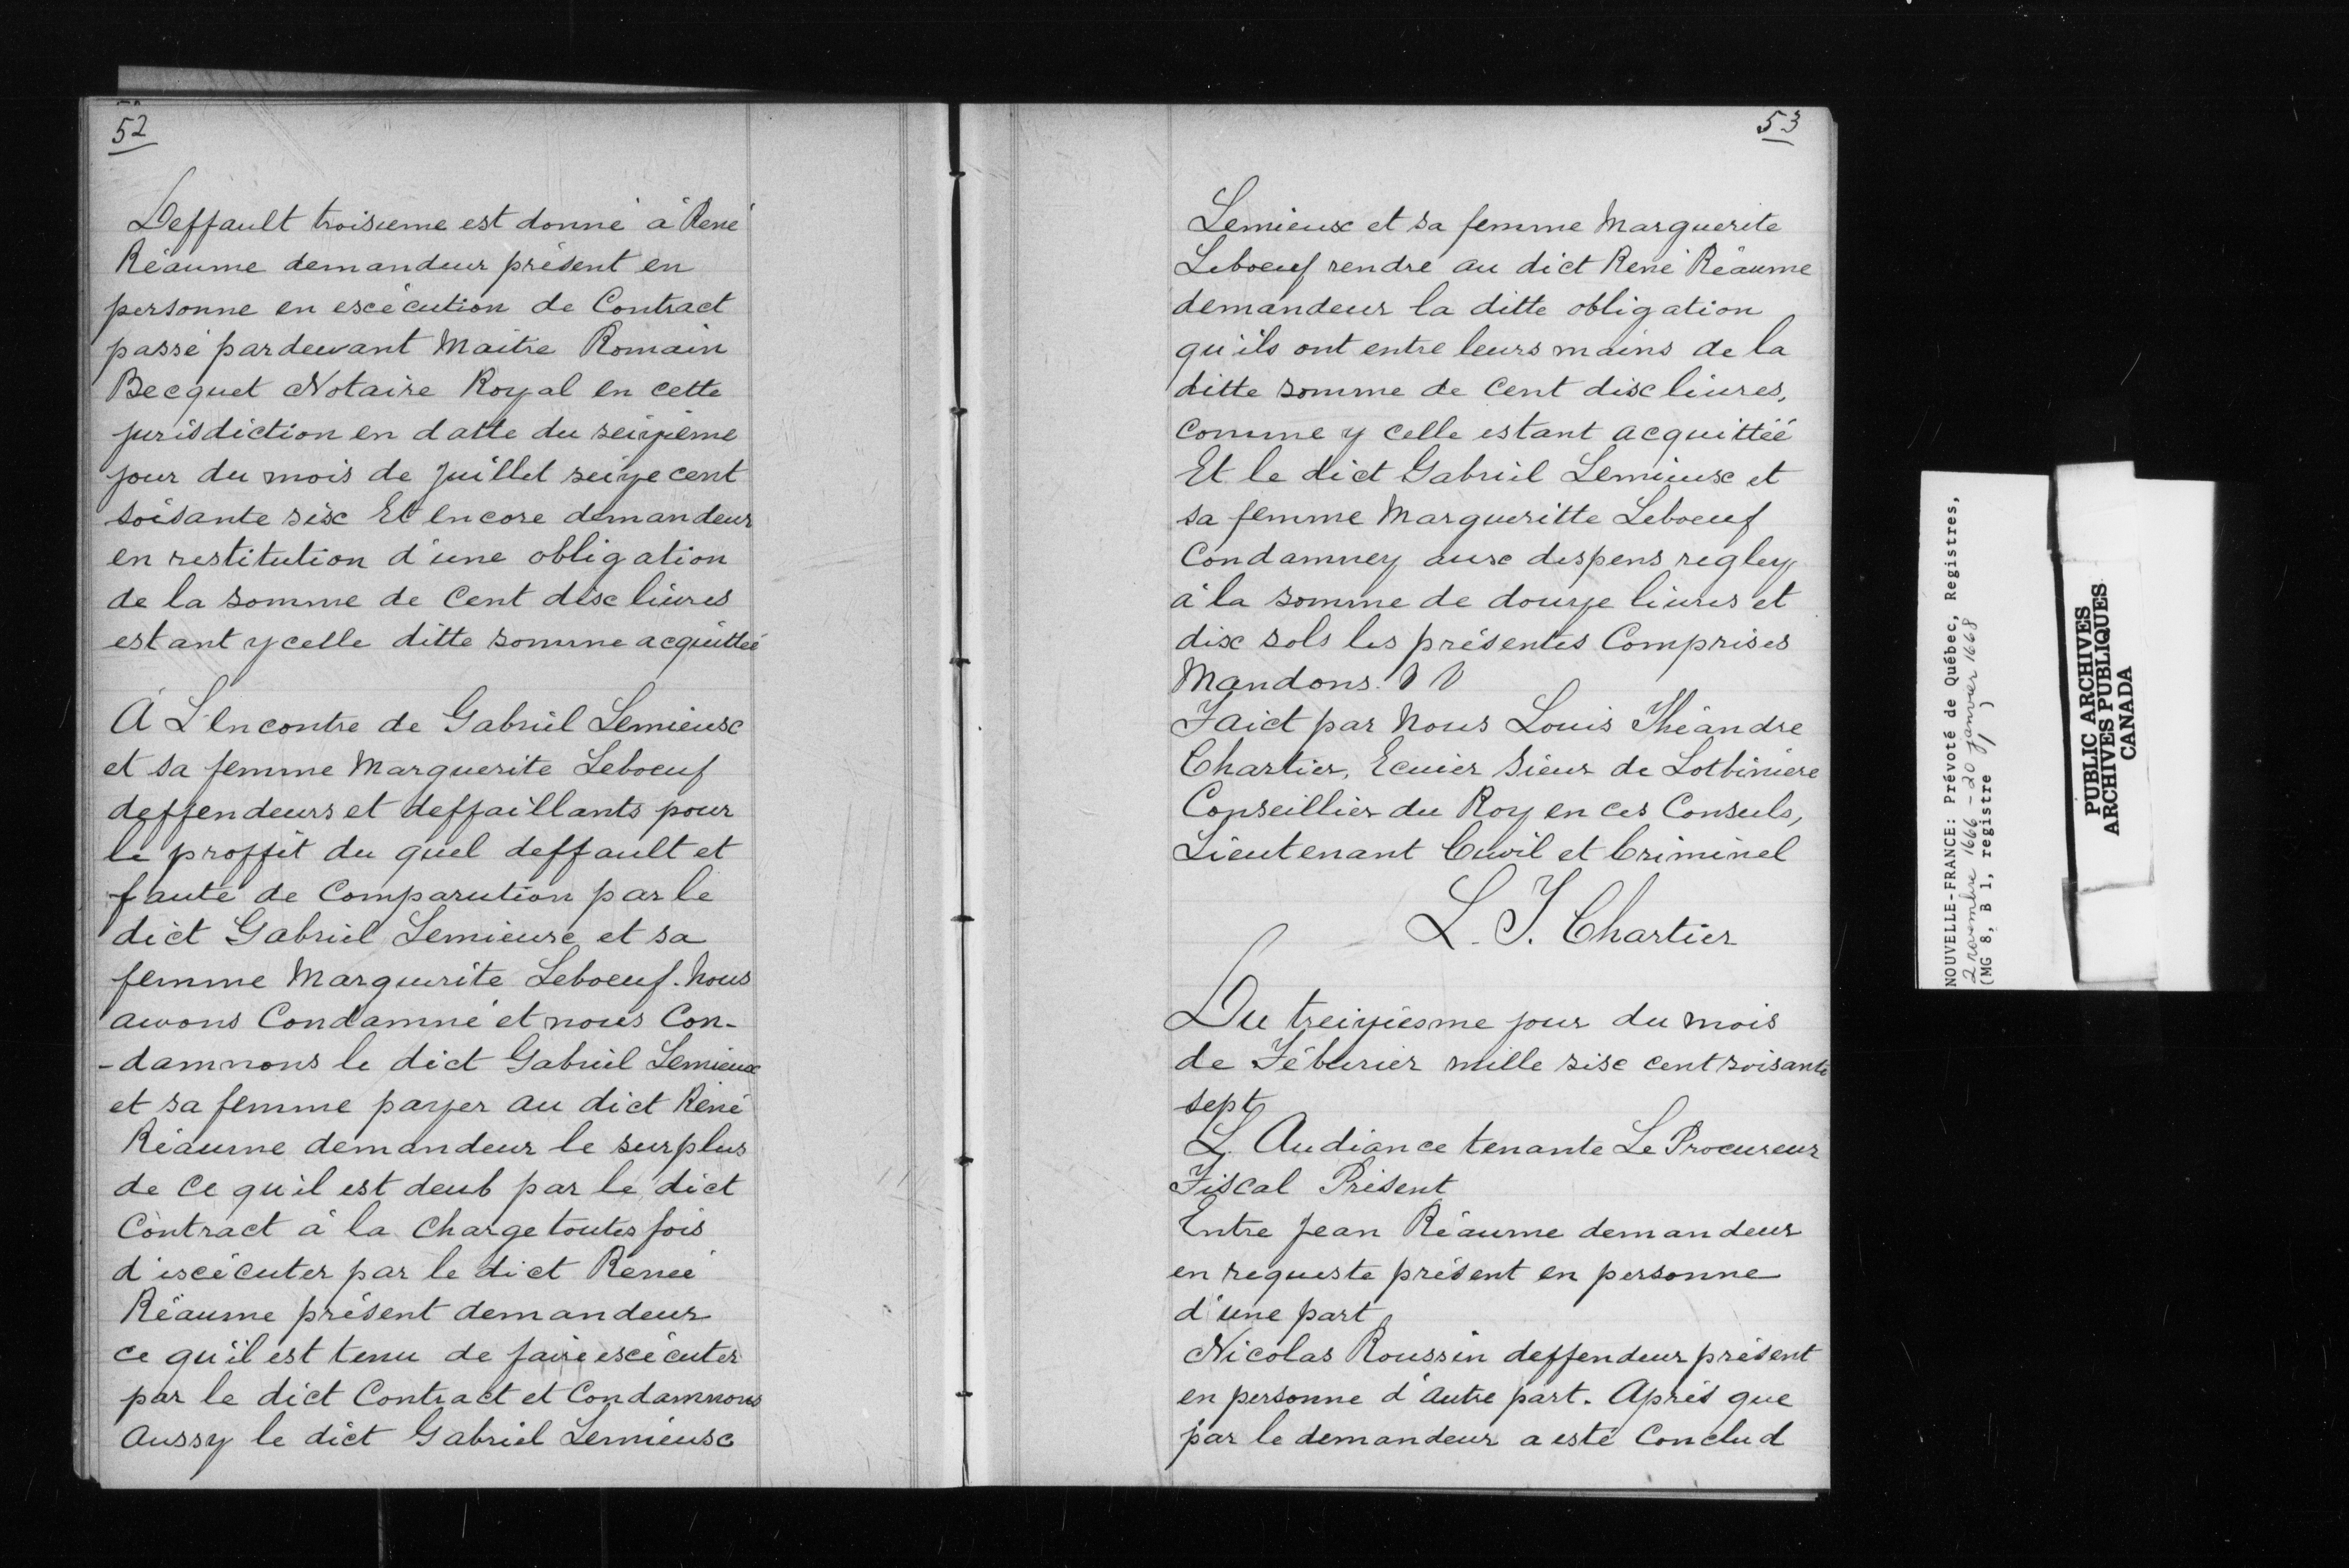 52
Deffault troisieme est donné à René
Réaume demandeur présent en
personne en escécution de Contract
passé pardeuvant Maitre Romain
Becquet Notaire Royal en cette
jurisdiction en datte du seizième
jour du mois de juillet seize cent
soisante sisc Et encore demandeur
en restitution d'une obligation
de la somme de Cent disc liures
estant ycelle ditte somme acquittéé
A L'encontre de Gabriel Lemieusc
et sa femme Marguerite Leboeuf
deffendeurs et deffaillants pour
le proffit du quel deffault et
faute de Comparution par le
dict Gabriel Lemieusc et sa
femme Marguerite Leboeuf. Nous
auvons Condamné et nous Con-
-damnons le dict Gabriel Lemieusc
et sa femme payer au dict René
Réaume demandeur le surplus
de Ce qu'il est deub par le dict
Contract à la Charge toutes fois
d'escécuter par le dict Renéé
Réaume présent demandeur
ce qu'il est tenu de faire escécuter
par le dict Contract et Condamnons
Aussy le dict Gabriel Lemieusc
53
Lemieusc et sa femme Marguerite
Leboeuf rendre au dict René Réaume
demandeur la ditte obligation
qu'ils ont entre leurs mains de la
ditte somme de Cent disc liures,
Comme y celle estant acquittéé
Et le dict Gabriel Lemieusc et
sa femme Margueritte Leboeuf
Condamney ausc despens regley
à la somme de douze liures et
disc sols les présentes Comprises
Mandons.
Faict par Nous Louis Théandre
Chartier, Ecuier Sieur de Lotbiniere
Conseillier du Roy en ces Conseils,
Lieutenant Civil et Criminel
L. T. Chartier
Du treiziesme jour du mois
de Féburier mille sisc cent soisante
sept
L'Audiance tenante Le Procureur
Fiscal Présent
Entre Jean Réaume demandeur
en requeste présent en personne
d'une part
Nicolas Roussin deffendeur présent
en personne d'autre part. Après que
par le demandeur a esté Conclud
NOUVELLE-FRANCE: Prévoté de Québec, Registres,
2 novembre 1666 - 20 janvier 1668
(MG 8, B 1, registre 1)
PUBLIC ARCHIVES
ARCHIVES PUBLIQUES
CANADA